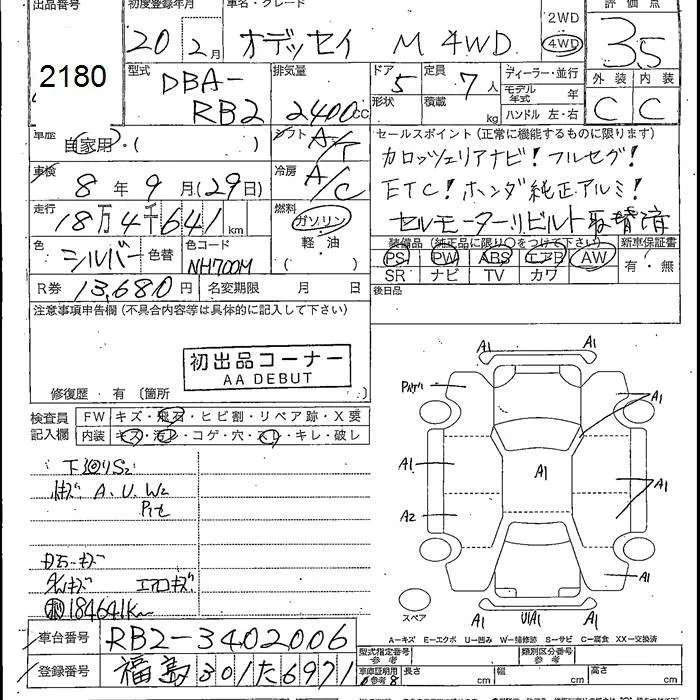 出品番号 初度登録年月 車名・グレード 評価点
2180
20年2月 オデッセイ M 4WD
2WD
4WD
3.5
型式 排気量 ドア 定員 ディーラー・並行 外装 内装
DBA-
RB2 2400cc 5 7人
形状 積載 kg
モデル年式 年
ハンドル 左・右
C C
車歴 自家用・( ) シフト A/T
セールスポイント(正常に機能するものに限ります)
カロッツェリアナビ! フルセグ!
車検 8年9月(29日) 冷房 A/C
ETC! ホンダ純正アルミ!
走行 18万4千641km 燃料 ガソリン
セルモーターリビルト取替済
軽・油
( )
色 シルバー 色替 色コード NH700M
装備品(純正品に限り○をつけて下さい) 新車保証書
PS PW ABS エアB AW 有・無
SR ナビ TV カワ
R券 13,680円 名変期限 月 日
後日品
注意事項申告欄(不具合内容等は具体的に記入して下さい)
初出品コーナー
AA DEBUT
修復歴・有〔箇所
検査員 FW キズ・飛石・ヒビ割・リペア跡・X要
記入欄 内装 キズ・汚れ・コゲ・穴・スレ・キレ・破れ
下廻りS2
キズ A. U. W2
飛石・キズ
エアロキズ
184641Km
A1
A1
A1
A1
A1
A1
A2
A1
A1 U1A1 A1
スペア
A-キズ E-エクボ U-凹み W-補修跡 S-サビ C-腐食 XX-交換済
車台番号 RB2-3402006
型式指定番号 参考 類別区分番号 参考
登録番号 福島301た6971
車庫証明用 参考 長さ cm 幅 cm 高さ cm